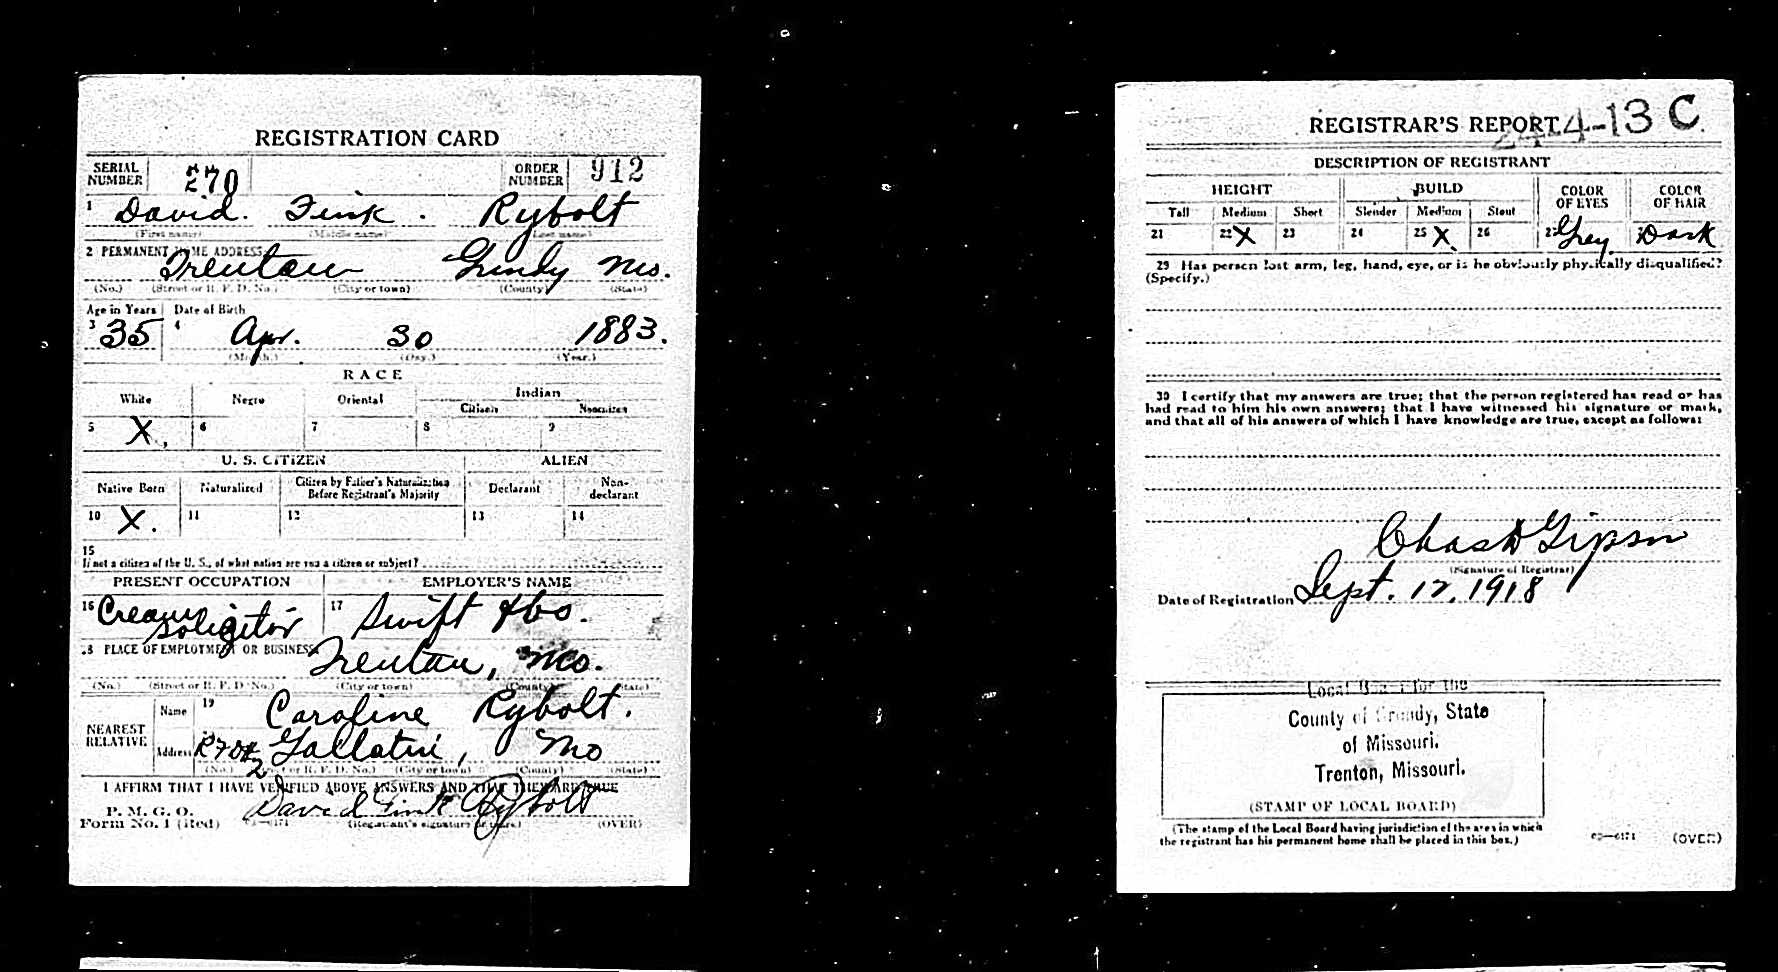 REGISTRATION CARD
SERIAL NUMBER 270 ORDER NUMBER 912
1 David. Fink. Rybolt
(First name) (Middle name) (Last name)
2 PERMANENT HOME ADDRESS
Trenton Grundy Mo.
(No.) (Street or R. F. D. No.) (City or town) (County) (State)
Age in Years Date of Birth
3 35 4 Apr. 30 1883.
(Month.) (Day.) (Year.)
RACE
White Negro Oriental Indian
Citizen Noncitizen
5 X 6 7 8 9
U. S. CITIZEN ALIEN
Native Born Naturalized Citizen by Father's Naturalization Before Registrant's Majority Declarant Non-declarant
10 X. 11 12 13 14
15
If not a citizen of the U. S., of what nation are you a citizen or subject?
PRESENT OCCUPATION EMPLOYER'S NAME
16 Cream Soligitor 17 Swift & Co.
18 PLACE OF EMPLOYMENT OR BUSINESS
Trenton, Mo.
(No.) (Street or R. F. D. No.) (City or town) (County) (State)
NEAREST RELATIVE
Name 19 Caroline Rybolt.
Address RFD #2 Gallatin, Mo
(No.) (Street or R. F. D. No.) (City or town) (County) (State)
I AFFIRM THAT I HAVE VERIFIED ABOVE ANSWERS AND THAT THEY ARE TRUE
P. M. G. O.
Form No. 1 (Red) David Fink Rybolt
(Registrant's signature or mark) (OVER)
REGISTRAR'S REPORT 24-4-13 C
DESCRIPTION OF REGISTRANT
HEIGHT BUILD COLOR OF EYES COLOR OF HAIR
Tall Medium Short Slender Medium Stout
21 22 X 23 24 25 X 26 27 Grey Dark
29 Has person lost arm, leg, hand, eye, or is he obviously physically disqualified?
(Specify.)
30 I certify that my answers are true; that the person registered has read or has
had read to him his own answers; that I have witnessed his signature or mark,
and that all of his answers of which I have knowledge are true, except as follows:
Chas D Gipson
(Signature of Registrar)
Date of Registration Sept. 12, 1918
Local Board for the
County of Grundy, State
of Missouri.
Trenton, Missouri.
(STAMP OF LOCAL BOARD)
(The stamp of the Local Board having jurisdiction of the area in which
the registrant has his permanent home shall be placed in this box.)
03—6171 (OVER)